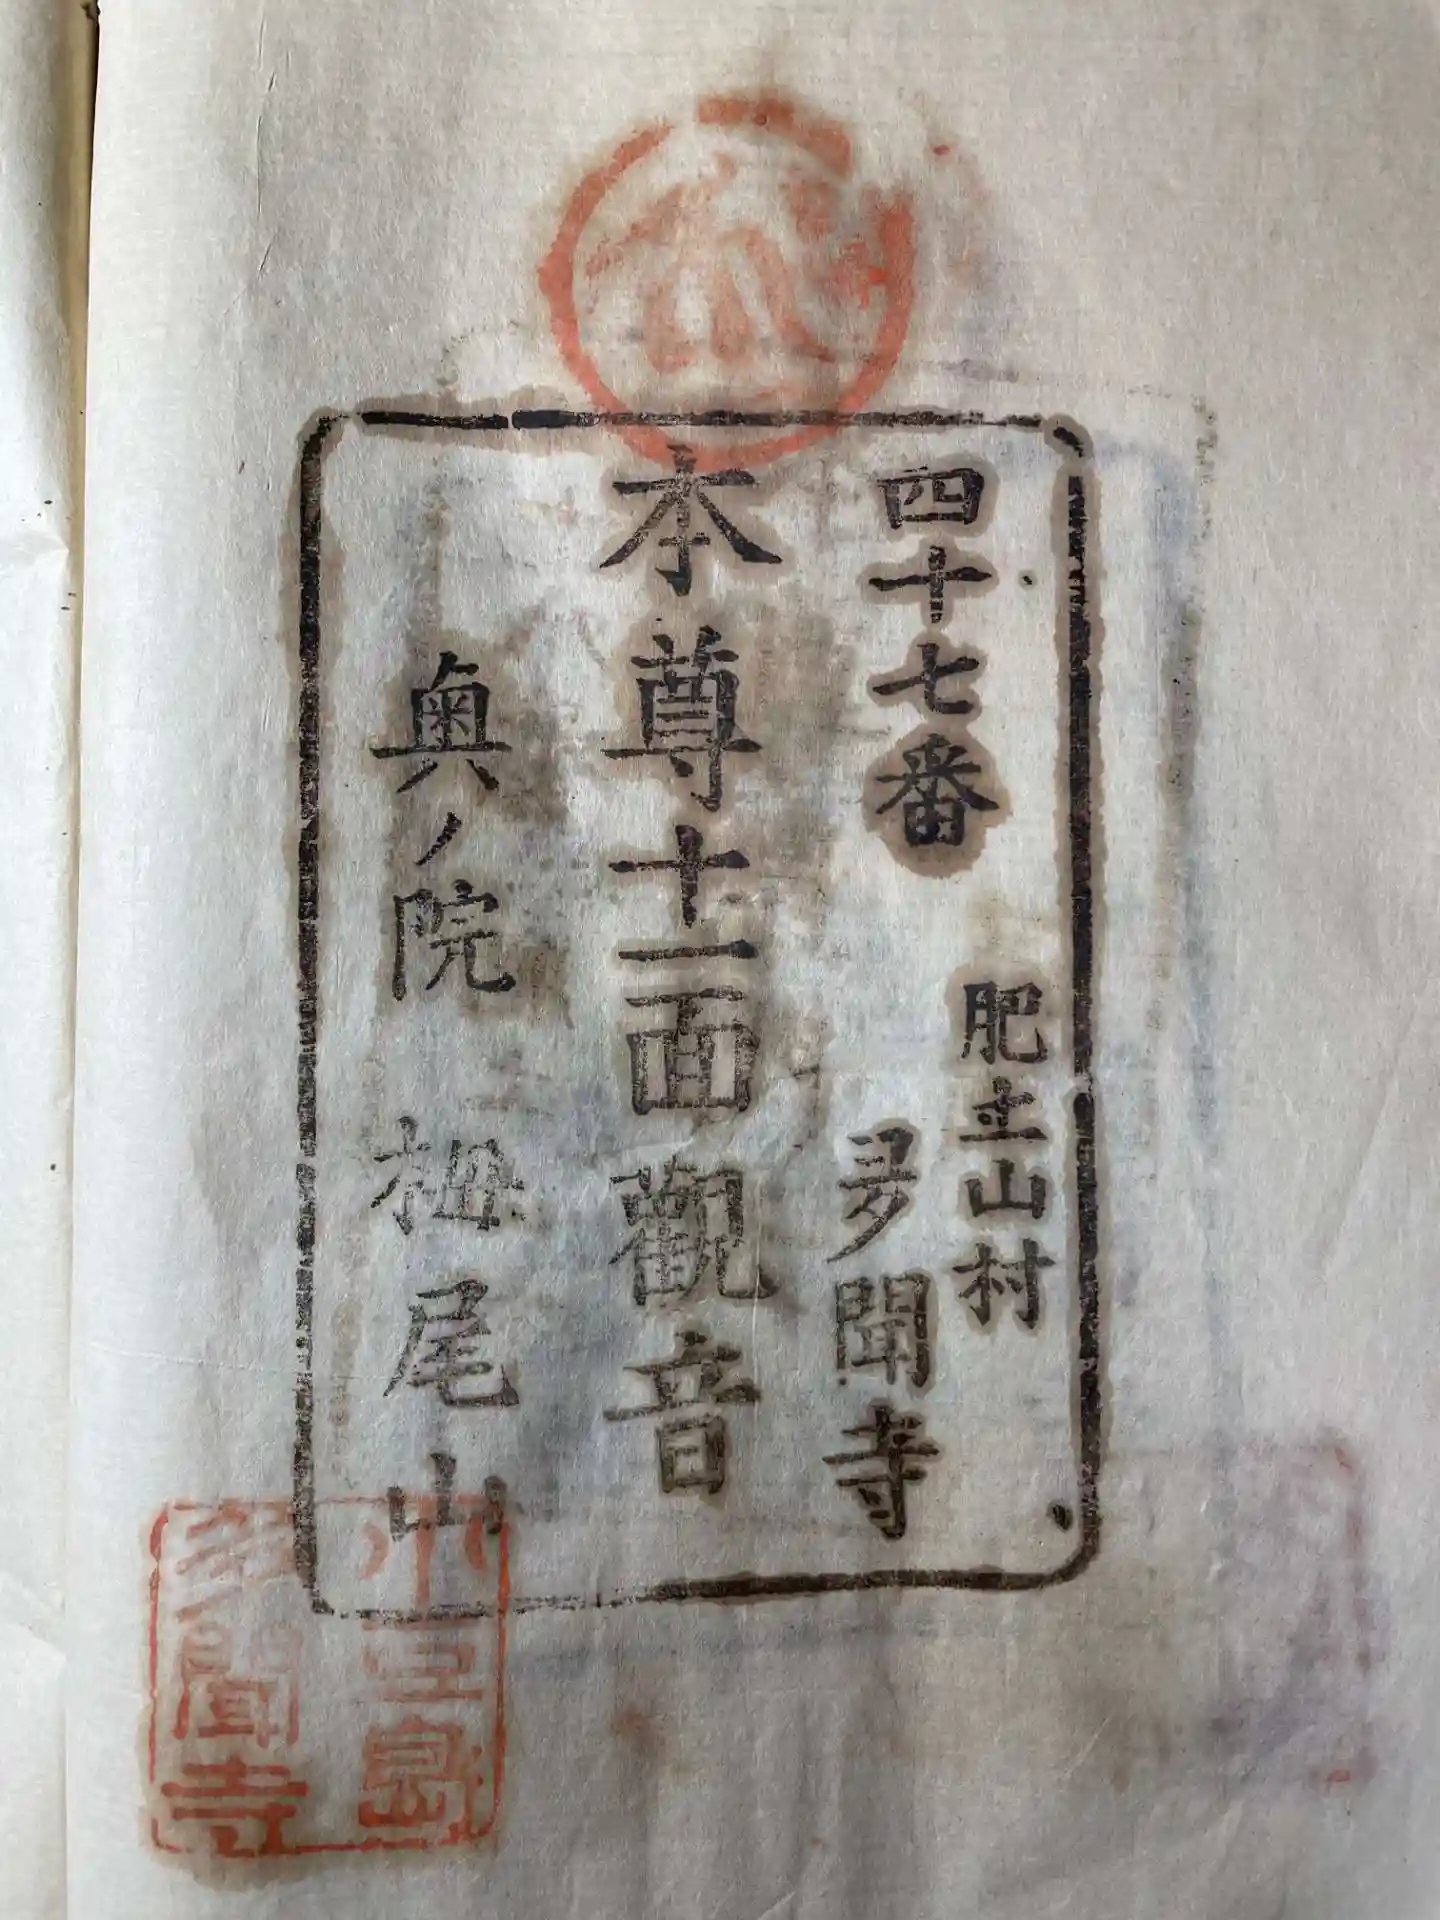 四十七番
肥土山村
多聞寺
本尊十一面觀音
奥ノ院 栂尾山
小豆島
多聞寺